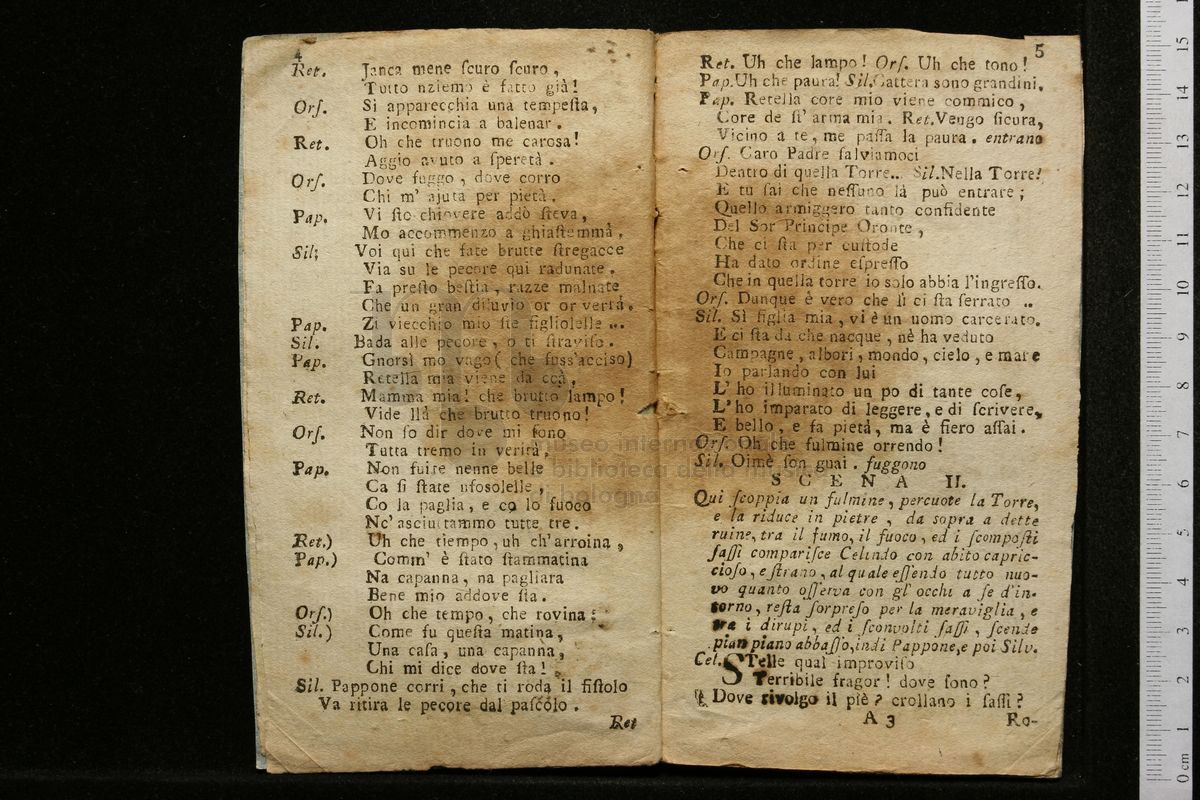 4
Ret. Janca mene ſcuro ſcuro,
Tutto nziemo è fatto già!
Orſ. Si apparecchia una tempeſta,
E incomincia a balenar.
Ret. Oh che truono me caroſa!
Aggio avuto a ſperetà.
Orſ. Dove fuggo, dove corro
Chi m' ajuta per pietà.
Pap. Vi ſto chiovere addò ſteva,
Mo accommenzo a ghiaſtemmà.
Sil; Voi qui che fate brutte ſtregacce
Via su le pecore qui radunate.
Fa preſto beſtia, razze malnate
Che un gran diluvio or or verrà.
Pap. Zi viecchio mio ſte figliolelle ...
Sil. Bada alle pecore, o ti ſtraviſo.
Pap. Gnorsì mo vago ( che fuss'acciso)
Retella mia viene da ccà,
Ret. Mamma mia! che brutto lampo!
Vide llà che brutto truono!
Orſ. Non ſo dir dove mi ſono
Tutta tremo in verità,
Pap. Non fuire nenne belle
Ca ſi ſtate nfoſolelle,
Co la paglia, e co lo fuoco
Nc' aſciuttammo tutte tre.
Ret.) Uh che tiempo, uh ch'arroina,
Pap.) Comm' è ſtato ſtammatina
Na capanna, na pagliara
Bene mio addove ſta.
Orſ.) Oh che tempo, che rovina:
Sil.) Come fu queſta matina,
Una caſa, una capanna,
Chi mi dice dove ſta!
Sil. Pappone corri, che ti roda il fiſtolo
Va ritira le pecore dal paſcolo.
Ret
5
Ret. Uh che lampo! Orſ. Uh che tono!
Pap. Uh che paura! Sil. Cattera sono grandini.
Pap. Retella core mio viene commico,
Core de ſt' arma mia. Ret. Vengo ſicura,
Vicino a te, me paſſa la paura. entrano
Orſ. Caro Padre ſalviamoci
Dentro di quella Torre.. Sil. Nella Torre!
E tu ſai che neſſuno là può entrare;
Quello armiggero tanto confidente
Del Sor Principe Oronte,
Che ci ſta per cuſtode
Ha dato ordine eſpreſſo
Che in quella torre io solo abbia l'ingreſſo.
Orſ. Dunque è vero che lì ci ſta ſerrato ..
Sil. Sì figlia mia, vi è un uomo carcerato.
E ci ſta da che nacque, nè ha veduto
Campagne, albori, mondo, cielo, e mare
Io parlando con lui
L' ho illuminato un po di tante coſe,
L' ho imparato di leggere, e di ſcrivere,
E bello, e fa pietà, ma è fiero aſſai.
Orſ. Oh che fulmine orrendo!
Sil. Oimè ſon guai. fuggono
SCENA II.
Qui ſcoppia un fulmine, percuote la Torre,
e la riduce in pietre, da sopra a dette
ruine, tra il fumo, il fuoco, ed i ſcompoſti
ſaſſi compariſce Celindo con abito capric-
cioſo, e ſtrano, al quale eſſendo tutto nuo-
vo quanto oſſerva con gl' occhi a ſe d'in-
torno, reſta ſorpreſo per la meraviglia, e
tra i dirupi, ed i ſconvolti ſaſſi, ſcende
pian piano abbaſſo, indi Pappone, e poi Silv.
Cel. STelle qual improviſo
Terribile fragor! dove ſono?
Dove rivolgo il piè? crollano i ſaſſi?
A 3 Ro-
museo internazionale
biblioteca della musica
di bologna
0 cm 1 2 3 4 5 6 7 8 9 10 11 12 13 14 15